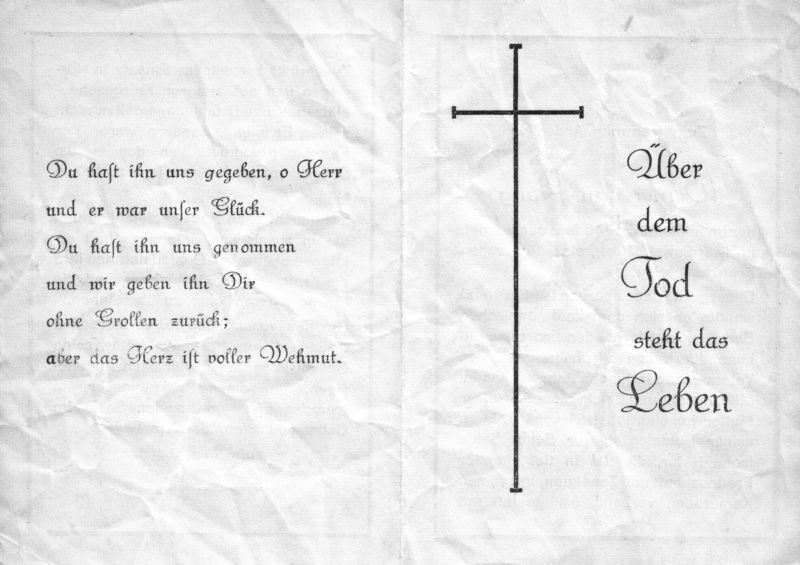 Du haſt ihn uns gegeben, o Herr
und er war unſer Glück.
Du haſt ihn uns genommen
und wir geben ihn Dir
ohne Grollen zurück;
aber das Herz iſt voller Wehmut.
Über
dem
Tod
steht das
Leben